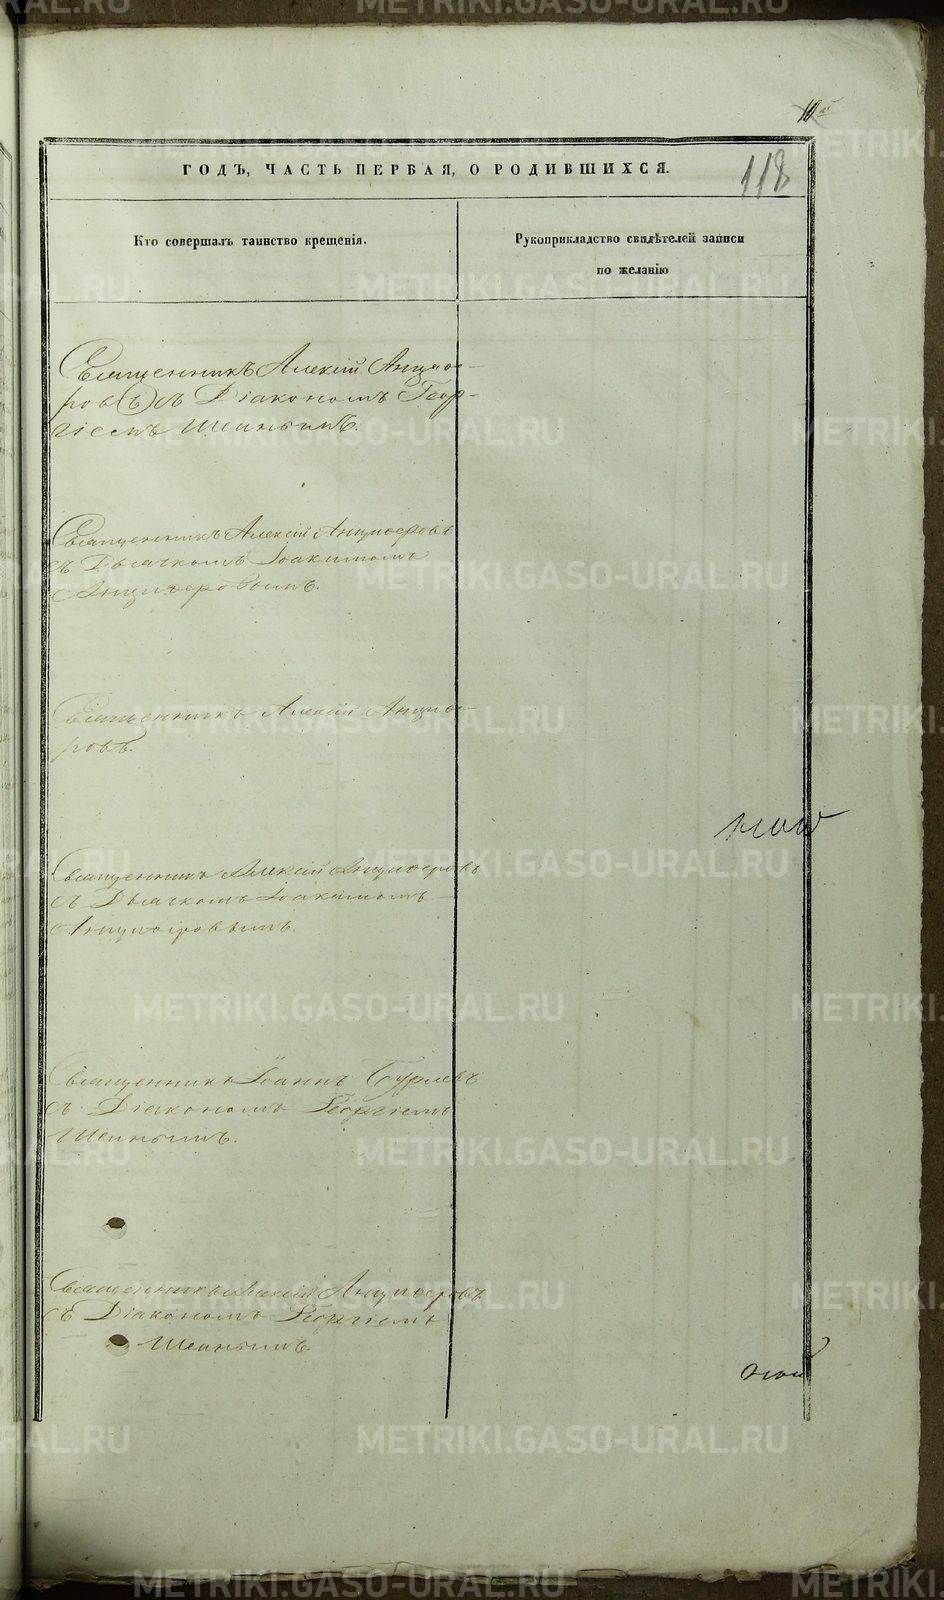 118
ГОДЪ, ЧАСТЬ ПЕРВАЯ, О РОДИВШИХСЯ.
Кто совершалъ таинство крещенія.
Рукоприкладство свидѣтелей записи
по желанію
Священникъ Алексій Анцифе-
ров(ъ) съ Діакономъ Геор-
гіемъ Шеинымъ.
Священникъ Алексій Анциферовъ
съ Дьячкомъ Іоакимомъ
Анциферовымъ.
Священникъ Алексій Анцифе-
ровъ.
Священникъ Алексій Анциферовъ
съ Дьячкомъ Іоакимомъ
Анциферовымъ.
Священникъ Іоаннъ
съ Діакономъ Георгіемъ
Шеинымъ.
Священникъ Алексій Анциферовъ
съ Діакономъ Георгіемъ
Шеинымъ
METRIKI.GASO-URAL.RU